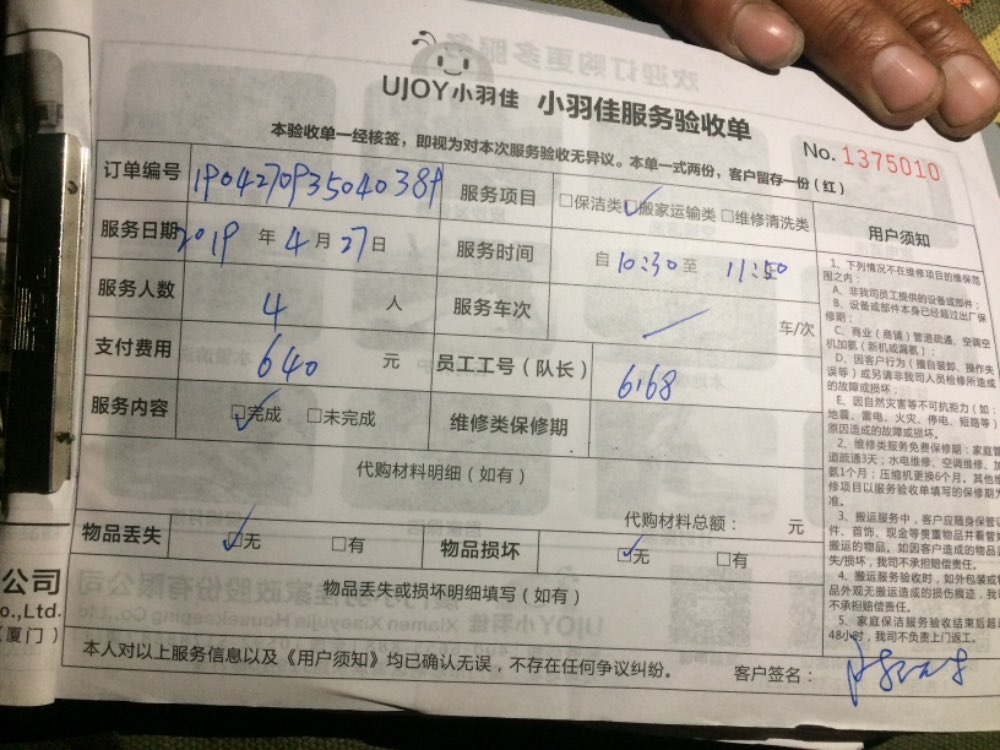 UJOY小羽佳 小羽佳服务验收单
本验收单一经核签，即视为对本次服务验收无异议。本单一式两份，客户留存一份(红)
No. 1375010
订单编号 190427093504038 服务项目 □保洁类 ☑搬家运输类 □维修清洗类
服务日期 2019 年 4 月 27 日 服务时间 自 10:30 至 11:50
服务人数 4 人 服务车次 车/次
支付费用 640 元 员工工号（队长） 6168
服务内容 ☑完成 □未完成 维修类保修期
代购材料明细（如有）
代购材料总额： 元
物品丢失 ☑无 □有 物品损坏 ☑无 □有
物品丢失或损坏明细填写（如有）
本人对以上服务信息以及《用户须知》均已确认无误，不存在任何争议纠纷。 客户签名：
用户须知
1、下列情况不在维修项目的维保范
围之内：
A、非我司员工提供的设备或部件；
B、设备或部件本身已经超过出厂保
修期；
C、商业（商铺）管道疏通、空调空
机加氨（新机或漏氨）；
D、因客户行为（擅自装卸、操作失
误等）或另请非我司人员检修所造成
的故障或损坏；
E、因自然灾害等不可抗拒力（如：
地震、雷电、火灾、停电、短路等）
原因造成的故障或损坏。
2、维修类服务免费保修期：家庭管
道疏通3天；水电维修、空调维修、加
氨1个月；压缩机更换6个月。其他维
修项目以服务验收单填写的保修期为
准。
3、搬运服务中，客户应随身保管
件、首饰、现金等贵重物品并看管
搬运的物品。如因客户造成的物品
失/损坏，我司不承担赔偿责任。
4、搬运服务验收时，如外包装或
品外观无搬运造成的损伤痕迹，我
不承担赔偿责任。
5、家庭保洁服务验收结束后超
48小时，我司不负责上门返工。
公司
o.,Ltd.
（厦门）